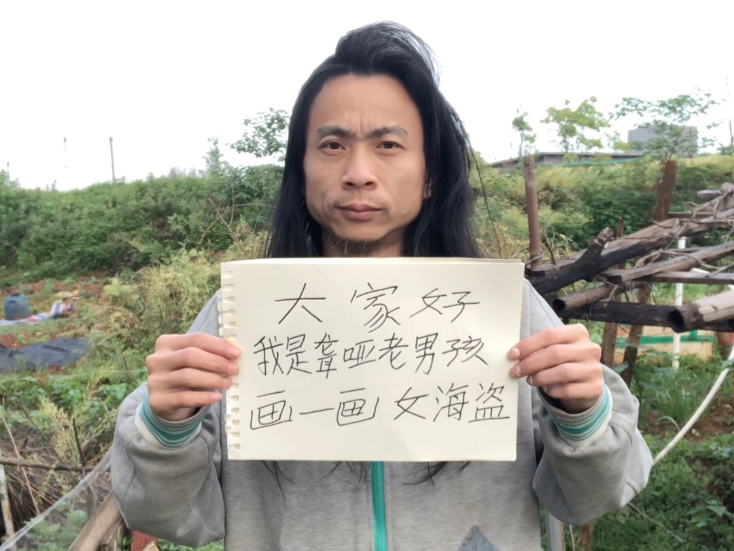 大家好
我是聋哑老男孩
画一画女海盗